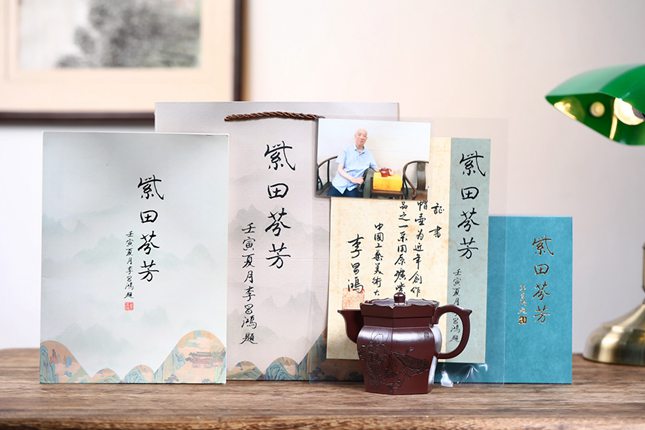 紫田芬芳
壬寅夏月李昌鸿题
紫田芬芳
壬寅夏月李昌鸿题
証書
帽壶为近年创作
品之一采用原矿
中国工艺美术大
李昌鸿
紫田芬芳
壬寅夏月李昌鸿题
紫田芬芳